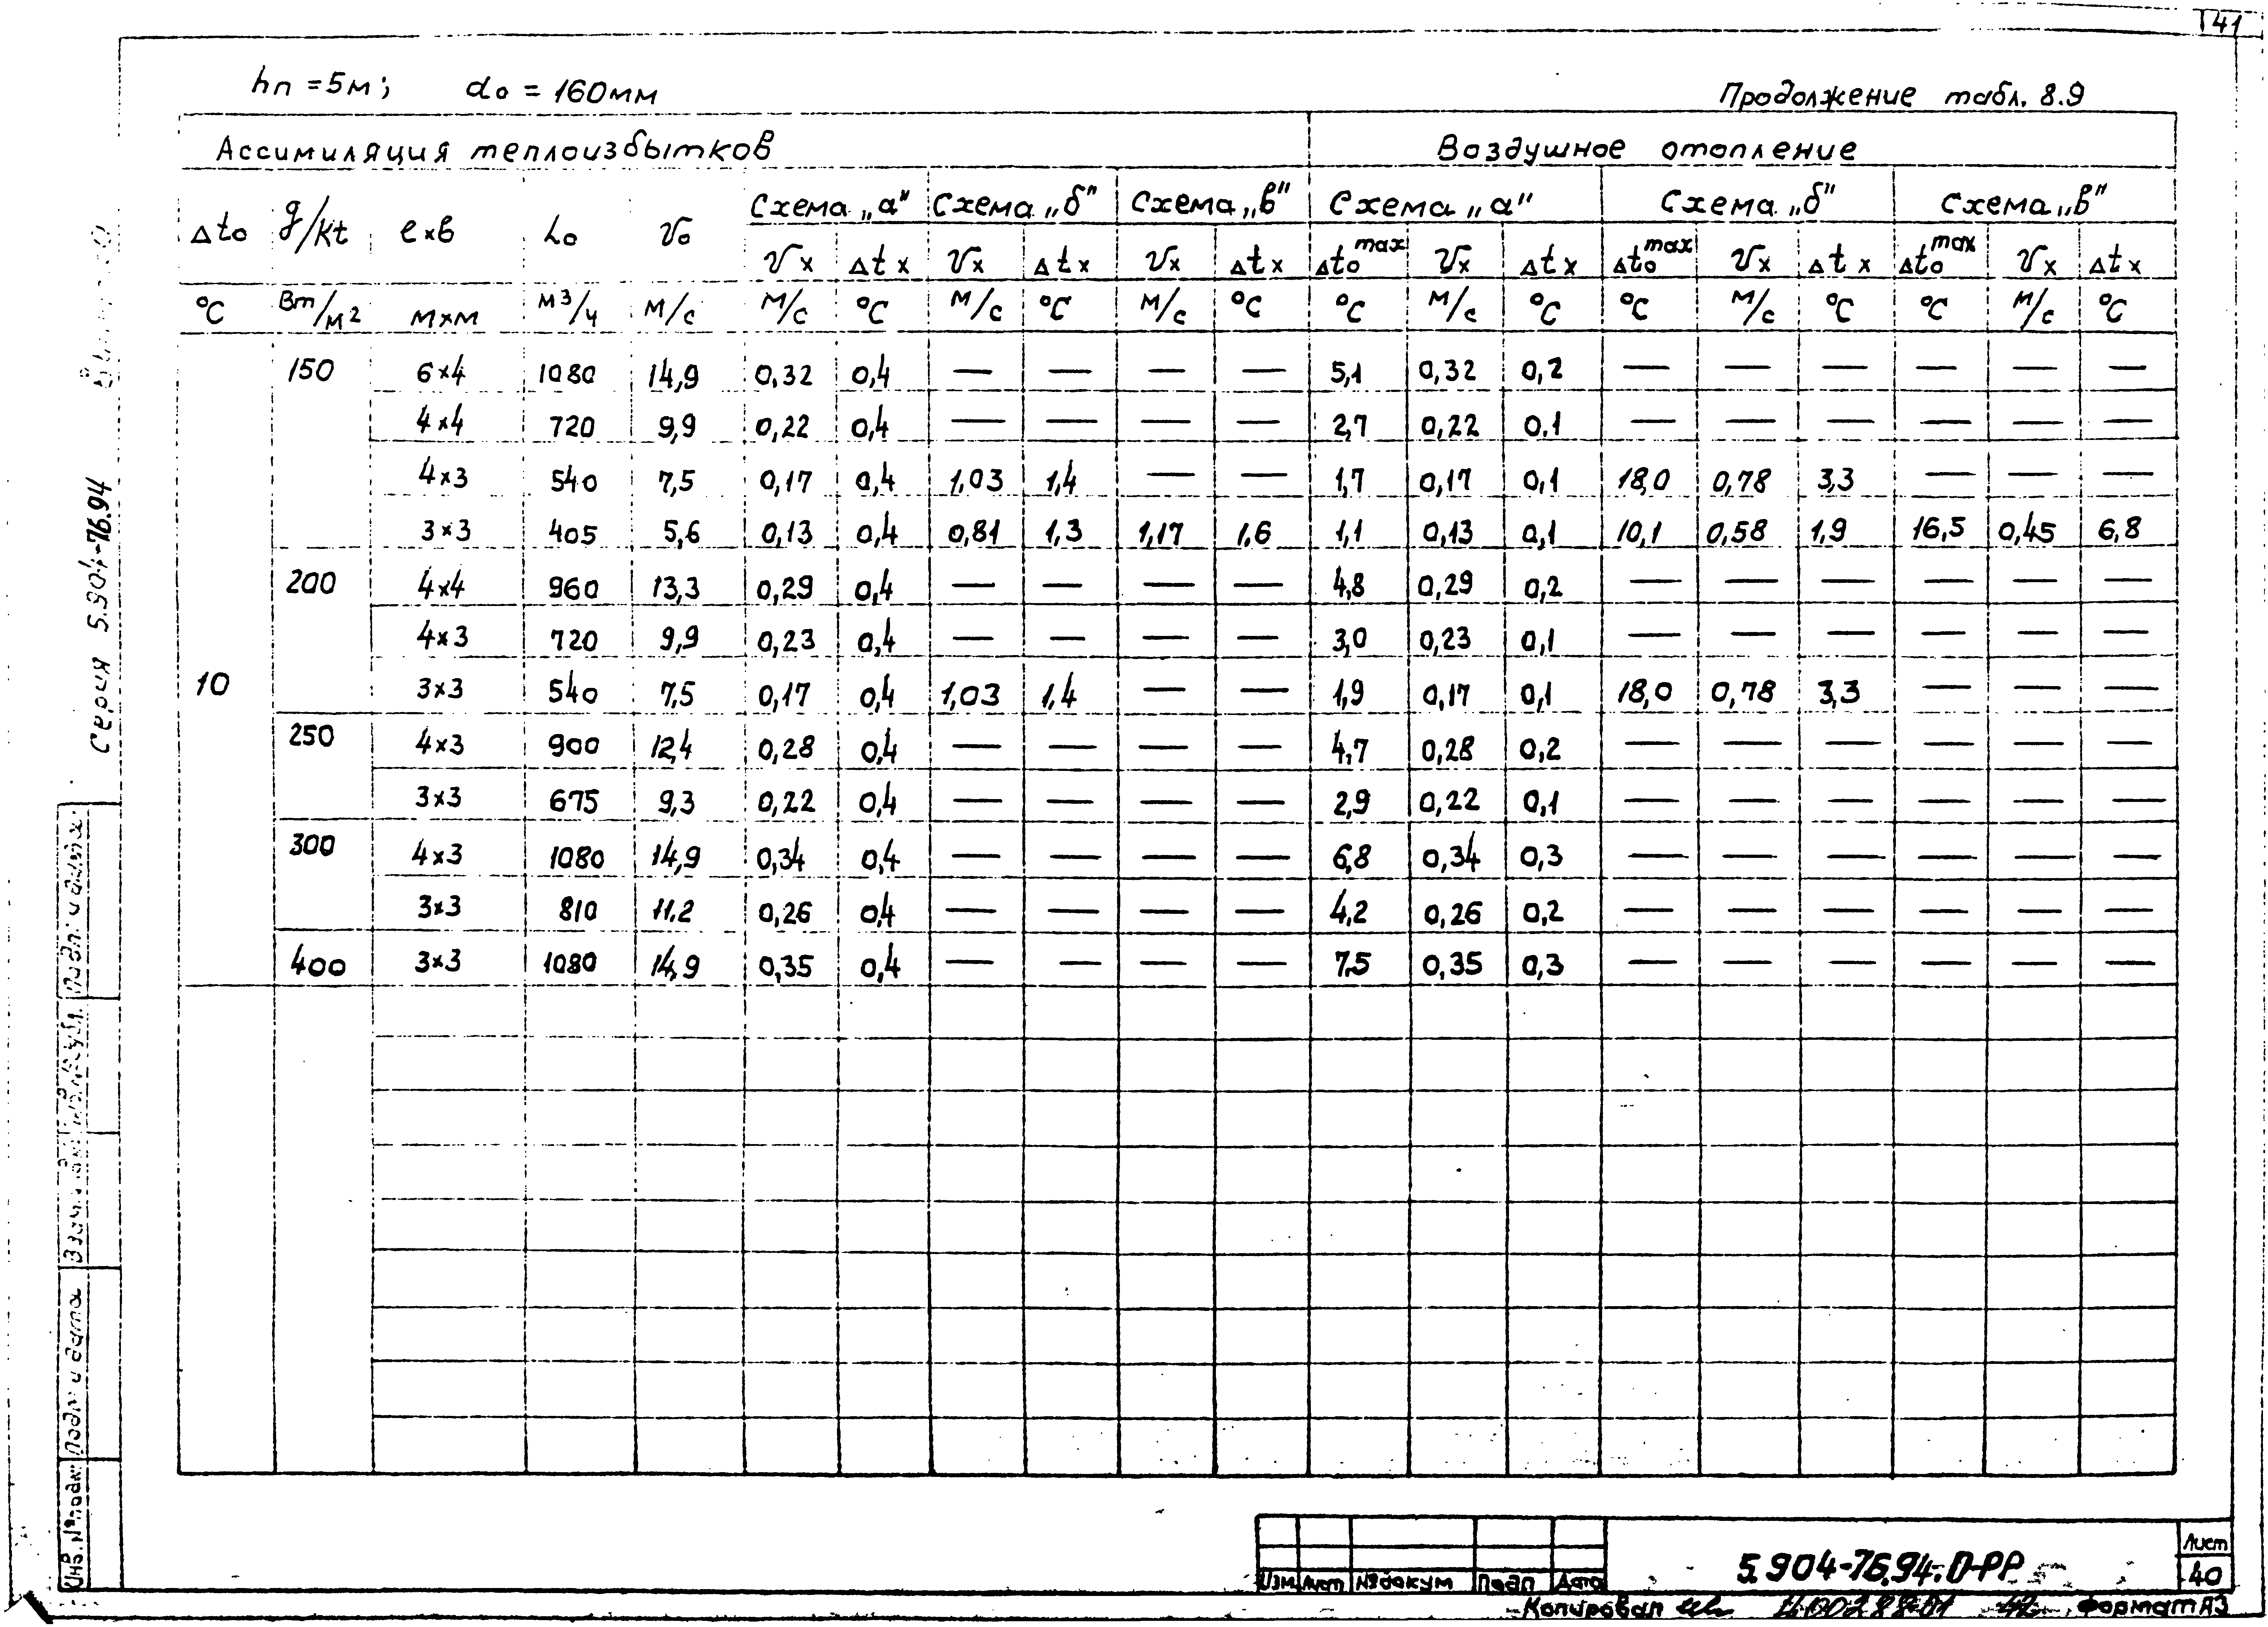 141
hп = 5м; dо = 160мм
Продолжение табл. 8.9
Ассимиляция теплоизбытков Воздушное отопление
Δtо g/Kt ℓхв Lо Vо Схема „а" Схема „б" Схема „в" Схема „а" Схема „б" Схема „в"
Vх Δtх Vх Δtх Vх Δtх Δtо max Vх Δtх Δtо max Vх Δtх Δtо max Vх Δtх
°С Вт/м2 мхм м3/ч м/с м/с °С м/с °С м/с °С °С м/с °С °С м/с °С °С м/с °С
150 6×4 1080 14,9 0,32 0,4 — — — — 5,1 0,32 0,2 — — — — — —
4×4 720 9,9 0,22 0,4 — — — — 2,7 0,22 0.1 — — — — — —
4×3 540 7,5 0,17 0,4 1,03 1,4 — — 1,7 0,17 0,1 18,0 0,78 3,3 — — —
3×3 405 5,6 0,13 0,4 0,81 1,3 1,17 1,6 1,1 0,13 0,1 10,1 0,58 1,9 16,5 0,45 6,8
200 4×4 960 13,3 0,29 0,4 — — — — 4,8 0,29 0,2 — — — — — —
4×3 720 9,9 0,23 0,4 — — — — 3,0 0,23 0,1 — — — — — —
10 3×3 540 7,5 0,17 0,4 1,03 1,4 — — 1,9 0,17 0,1 18,0 0,78 3,3 — — —
250 4×3 900 12,4 0,28 0,4 — — — — 4,7 0,28 0,2 — — — — — —
3×3 675 9,3 0,22 0,4 — — — — 2,9 0,22 0,1 — — — — — —
300 4×3 1080 14,9 0,34 0,4 — — — — 6,8 0,34 0,3 — — — — — —
3×3 810 11.2 0,26 0,4 — — — — 4,2 0,26 0,2 — — — — — —
400 3×3 1080 14,9 0,35 0,4 — — — — 7,5 0,35 0,3 — — — — — —
Серия 5.904-76.94
Подп. и дата
Взам. инв.
Подп и дата
Инв. № подл
Изм Лист № докум Подп Дата
5.904-76.94.0-РР
Лист
40
Копировал
Формат А3